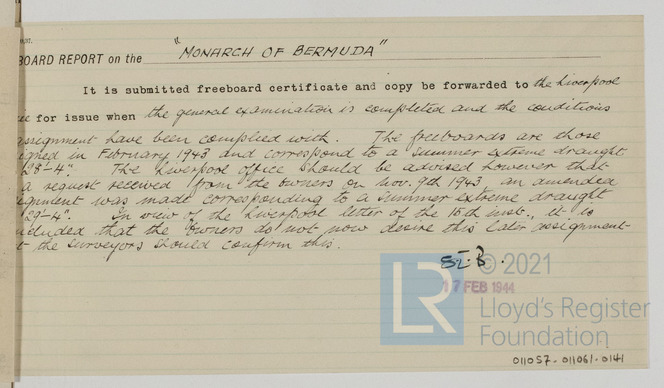 BOARD REPORT on the "MONARCH OF BERMUDA"
It is submitted freeboard certificate and copy be forwarded to the Liverpool
for issue when the general examination is completed and the conditions
assignment have been complied with. The freeboards are those
igned in February 1943 and correspond to a summer extreme draught
28'-4". The Liverpool office should be advised however that
a request received from the owners on Nov. 9th 1943 an amended
ignment was made corresponding to a summer extreme draught
29'-4". In view of the Liverpool letter of the 15th inst., it is
cluded that the owners do not now desire this later assignment
t the surveyors should confirm this.
© 2021
17 FEB 1944
LR
Lloyd's Register
Foundation
011057-011061-0141